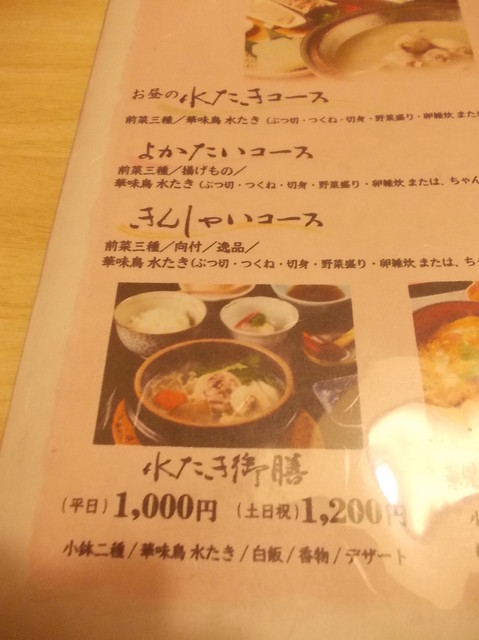 お昼の水たきコース
前菜三種／華味鳥 水たき（ぶつ切・つくね・切身・野菜盛り・卵雑炊 また
よかたいコース
前菜三種／揚げもの／
華味鳥 水たき（ぶつ切・つくね・切身・野菜盛り・卵雑炊 または、ちゃん
きんしゃいコース
前菜三種／向付／逸品／
華味鳥 水たき（ぶつ切・つくね・切身・野菜盛り・卵雑炊 または、ち
水たき御膳
（平日）1,000円 （土日祝）1,200円
小鉢二種／華味鳥 水たき／白飯／香物／デザート